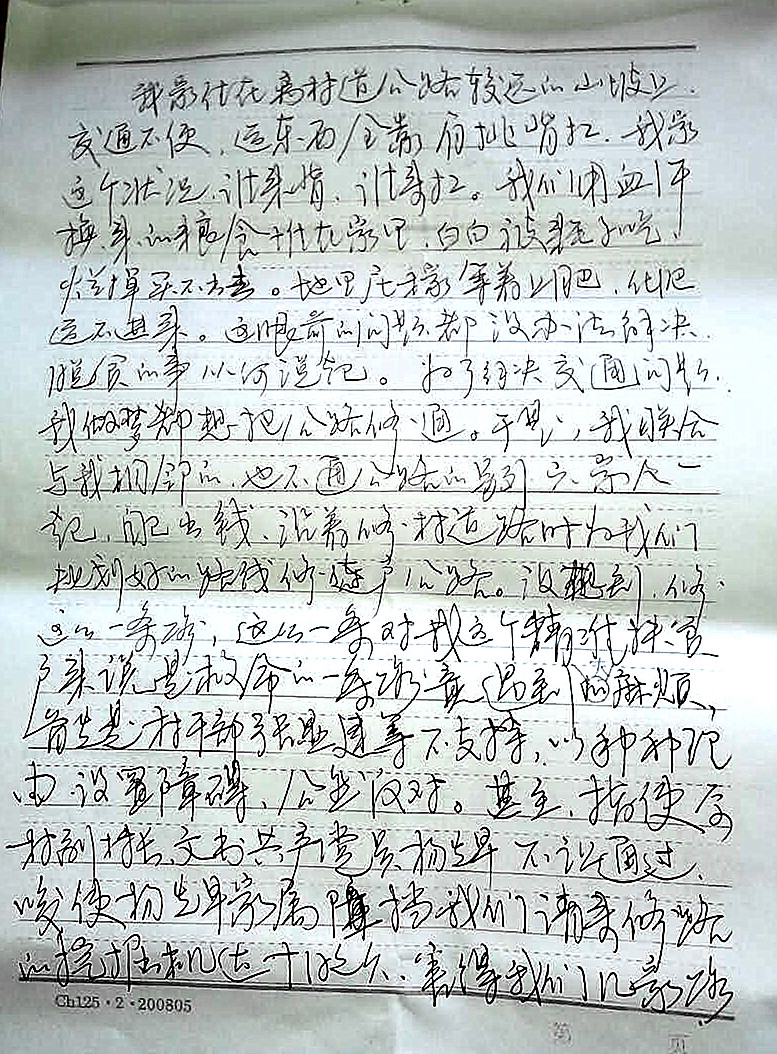 我家住在离村道公路较远的山坡上.
交通不便、运东西全靠肩挑背扛、我家
这个状况、谁来背、谁来扛。我们用血汗
换来的粮食堆在家里、白白被耗子吃、
烂掉买不出去。地里庄稼等着上肥、化肥
运不进来。这眼前的问题都没办法解决、
脱贫的事从何说起。为了解决交通问题、
我做梦都想把公路修通。于是、我联合
与我相邻的、也不通公路的另外六家人一
起、自己出钱、沿着修村道路时为我们
规划好的路线修建户公路。没想到、修
这么一条路，这么一条对我这个精准扶贫
户来说是救命的一条路竟遇到大的麻烦，
首先是村干部张 建等不支持、以种种理
由设置障碍、公然反对。甚至、指使原
村副村长、文书共产党员杨先早不让通过、
唆使杨先早家属阻挡我们请来修路
的挖掘机达十 次、害得我们几家路
Ch125·2·200805
第 页